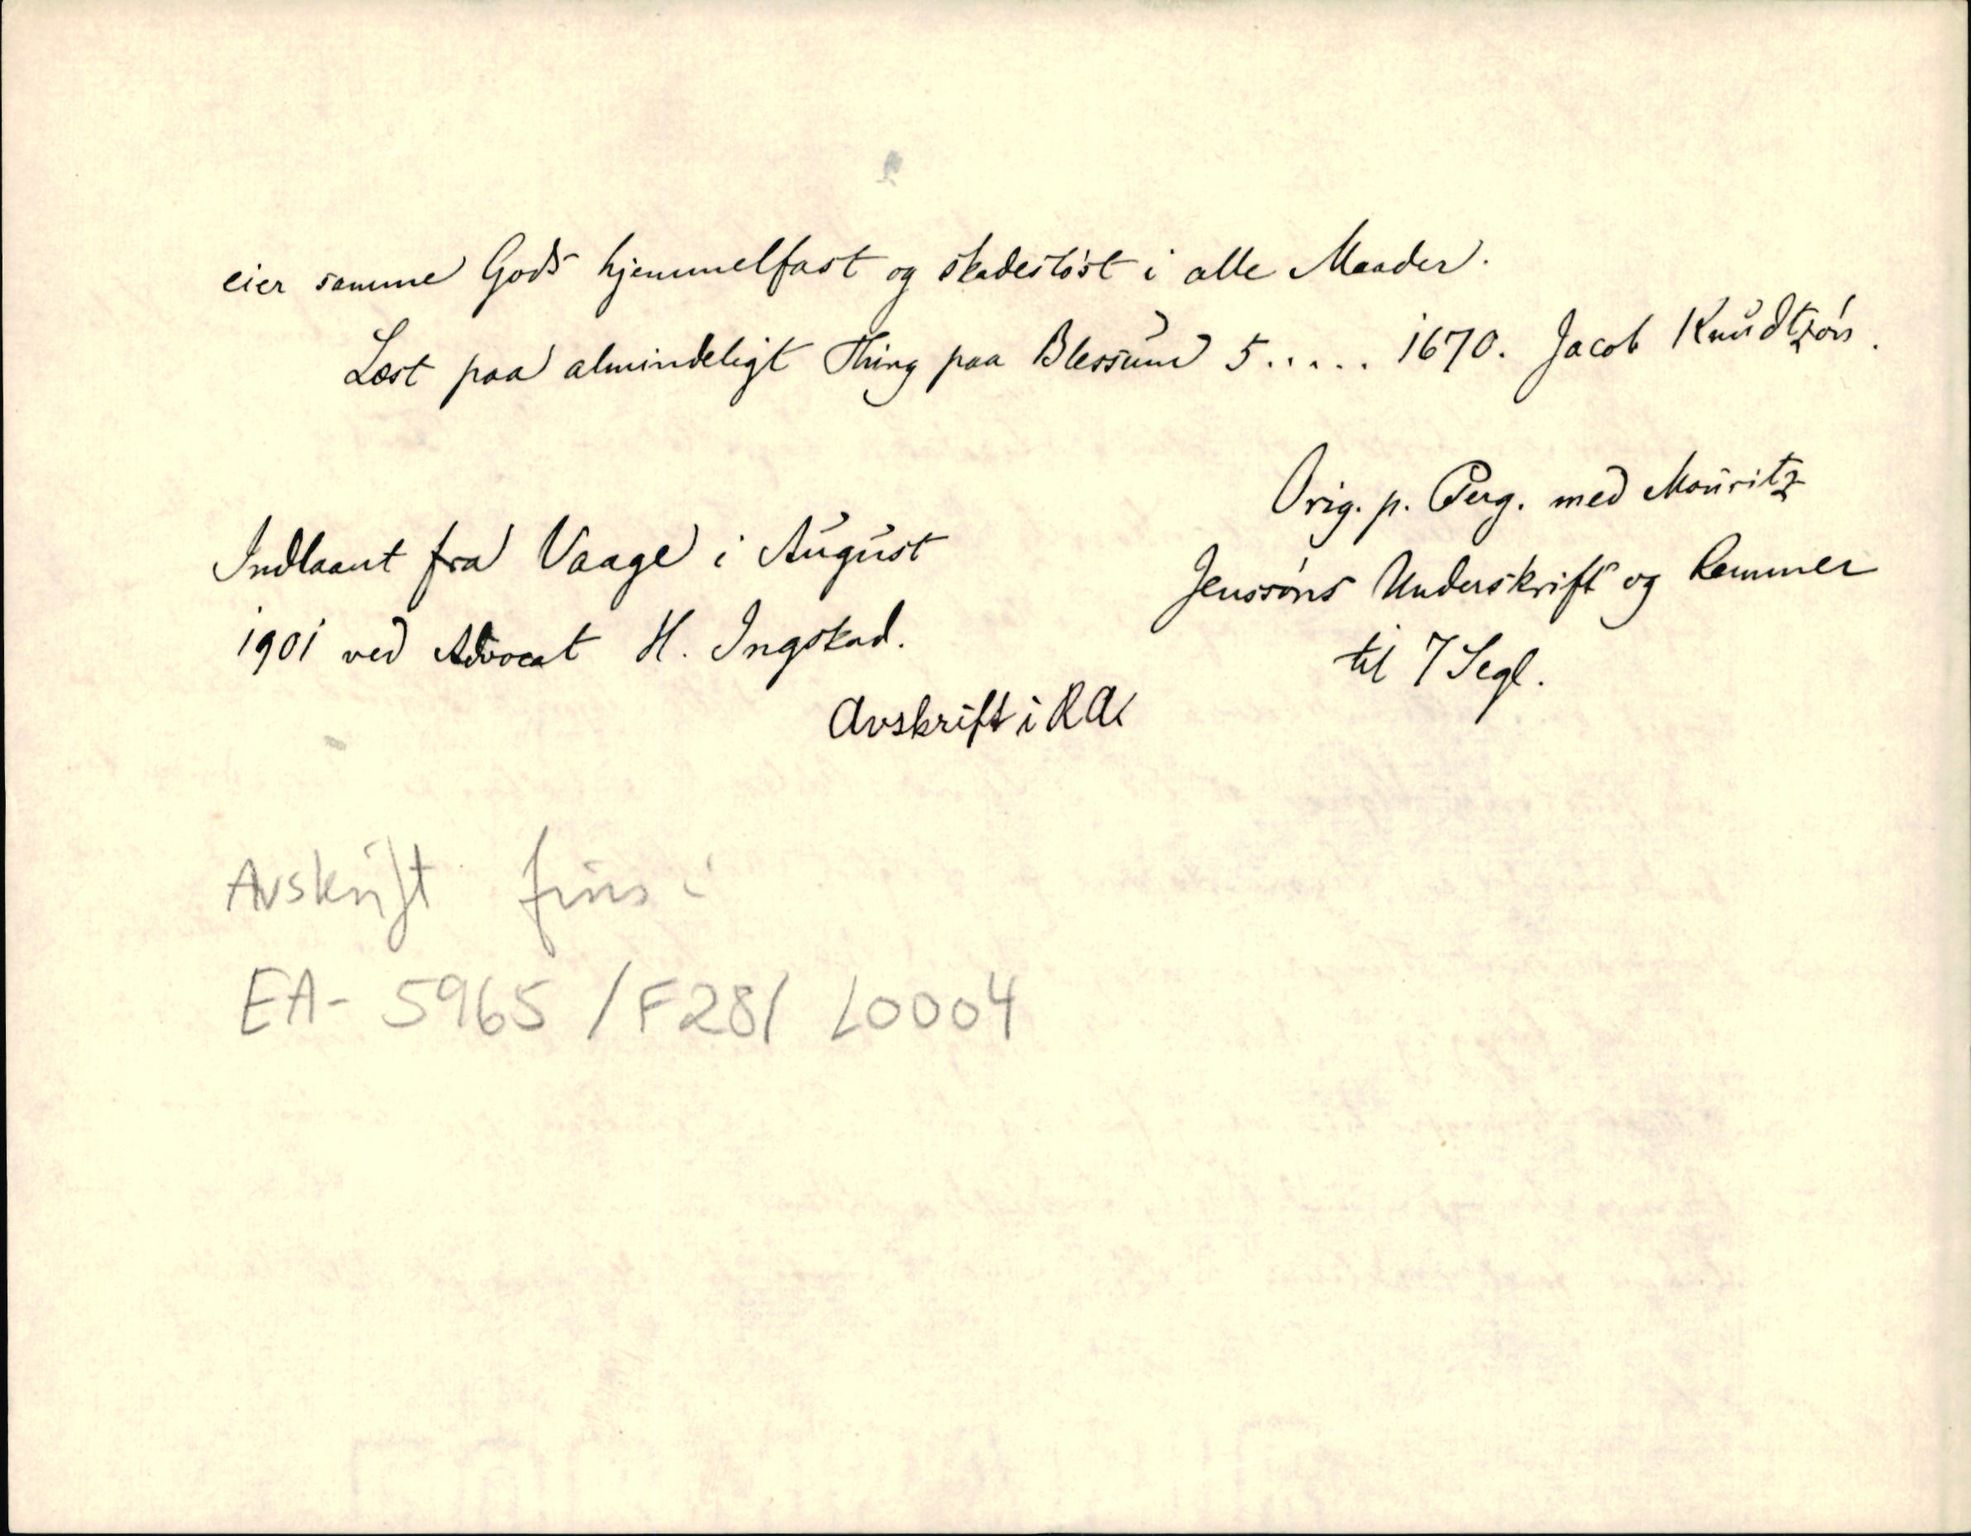 eier samme Gods hjemmelfast og skadesløst i alle Maader.
Læst paa almindeligt Thing paa Blessum 5..... 1670. Jacob Knudtzøn.
Orig. p. Perg. med Mouritz
Jenssøns Underskrift og Remmer
til 7 Segl.
Indlaant fra Vaage i August
1901 ved Advocat H. Ingstad.
Avskrift i RA
Avskrift fins i
EA- 5965 /F28/ L0004